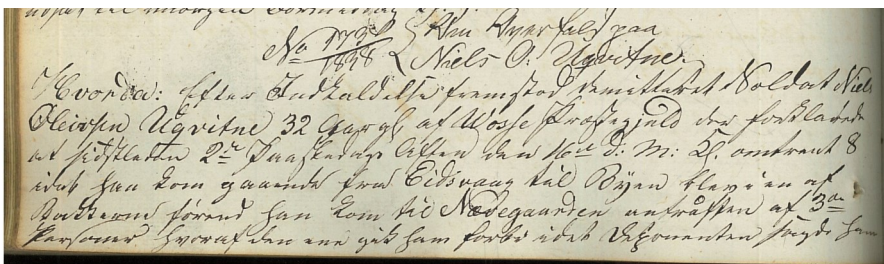 til morgen Formiddag
No 173/1838 Om Overfald paa
Niels O: Ugvitne.
Hvorda: Efter Indkaldelse fremstod demitteret Soldat Niels
Oleivsen Ugvitne 32 Aar gl. af Vosse Præstegjeld der forklarede
at sidstleden 2den Paaskedags Aften den 16de d: M: Kl. omtrent 8
idet han kom gaaende fra Eidsvaag til Byen blev i en af
Bakkerne førend han kom til Nævegaarden antruffen af 3de
Personer hvoraf den ene gik ham forbi idet Deponenten sagde ham